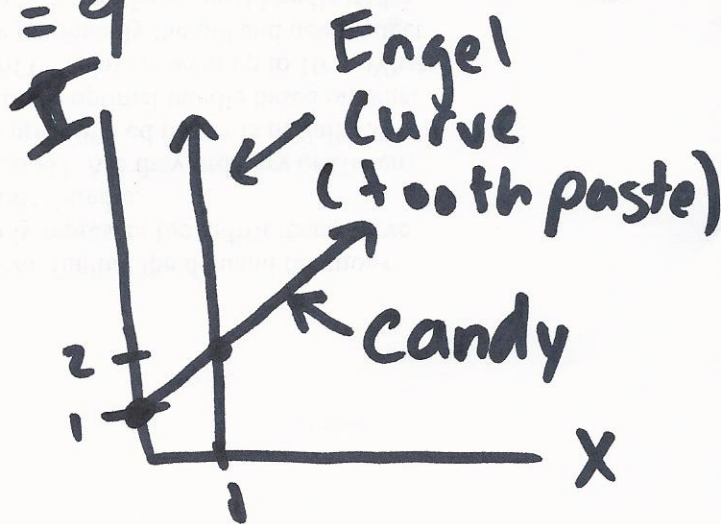 = 9
I
Engel
Curve
(tooth paste)
Candy
2
1
X
1